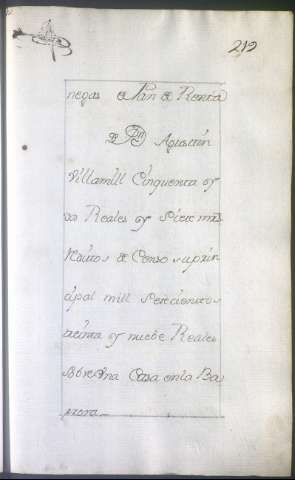 212
negas de Pan de Renta
Dn Agustin
Villamill Cinquenta y
un Reales y Siete mrs
Reditos de Censo su prin
cipal mill Setecientos
treinta y nuebe Reales
Sobre Una Casa en la Ba
rrera